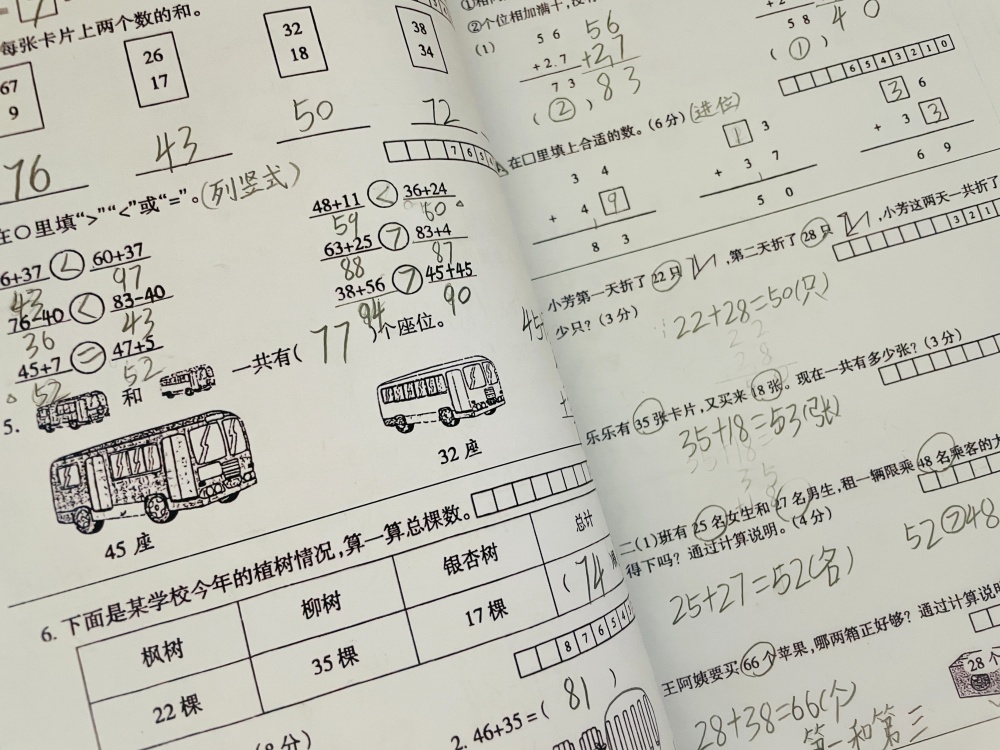 每张卡片上两个数的和。
67 9
26 17
32 18
38 34
76 43 50 72
7 6 5 4
在○里填“>”“<”或“=”。(列竖式)
6+37 < 60+37
43 97
76-40 < 83-40
36 43
45+7 = 47+5
52 52
48+11 < 36+24
59 60
63+25 > 83+4
88 87
38+56 > 45+45
94 90
5. 和 一共有( 77 )个座位。
45座
32座
6. 下面是某学校今年的植树情况,算一算总棵数。
枫树 柳树 银杏树 总计
22棵 35棵 17棵 (74
8 7 6 5 4
2. 46+35=( 81 )
②个位相加满十,
(1)
5 6
+ 2.7
7 3
( ② )
56
+27
83
5 8
( ① )
40
6 5 4 3 2 1 0
在□里填上合适的数。(6分)(进位)
3 4
+ 4 9
8 3
1 3
+ 3 7
5 0
3 6
+ 3 3
6 9
3 2 1
小芳第一天折了22只,第二天折了28只,小芳这两天一共折了
少只?(3分)
22+28=50(只)
乐乐有35张卡片,又买来18张。现在一共有多少张?(3分)
35+18=53(张)
二(1)班有25名女生和27名男生,租一辆限乘48名乘客的
得下吗?通过计算说明。(4分)
25+27=52(名)
52>48
王阿姨要买66个苹果,哪两箱正好够?通过计算说
28个
28+38=66(个)
第一和第三